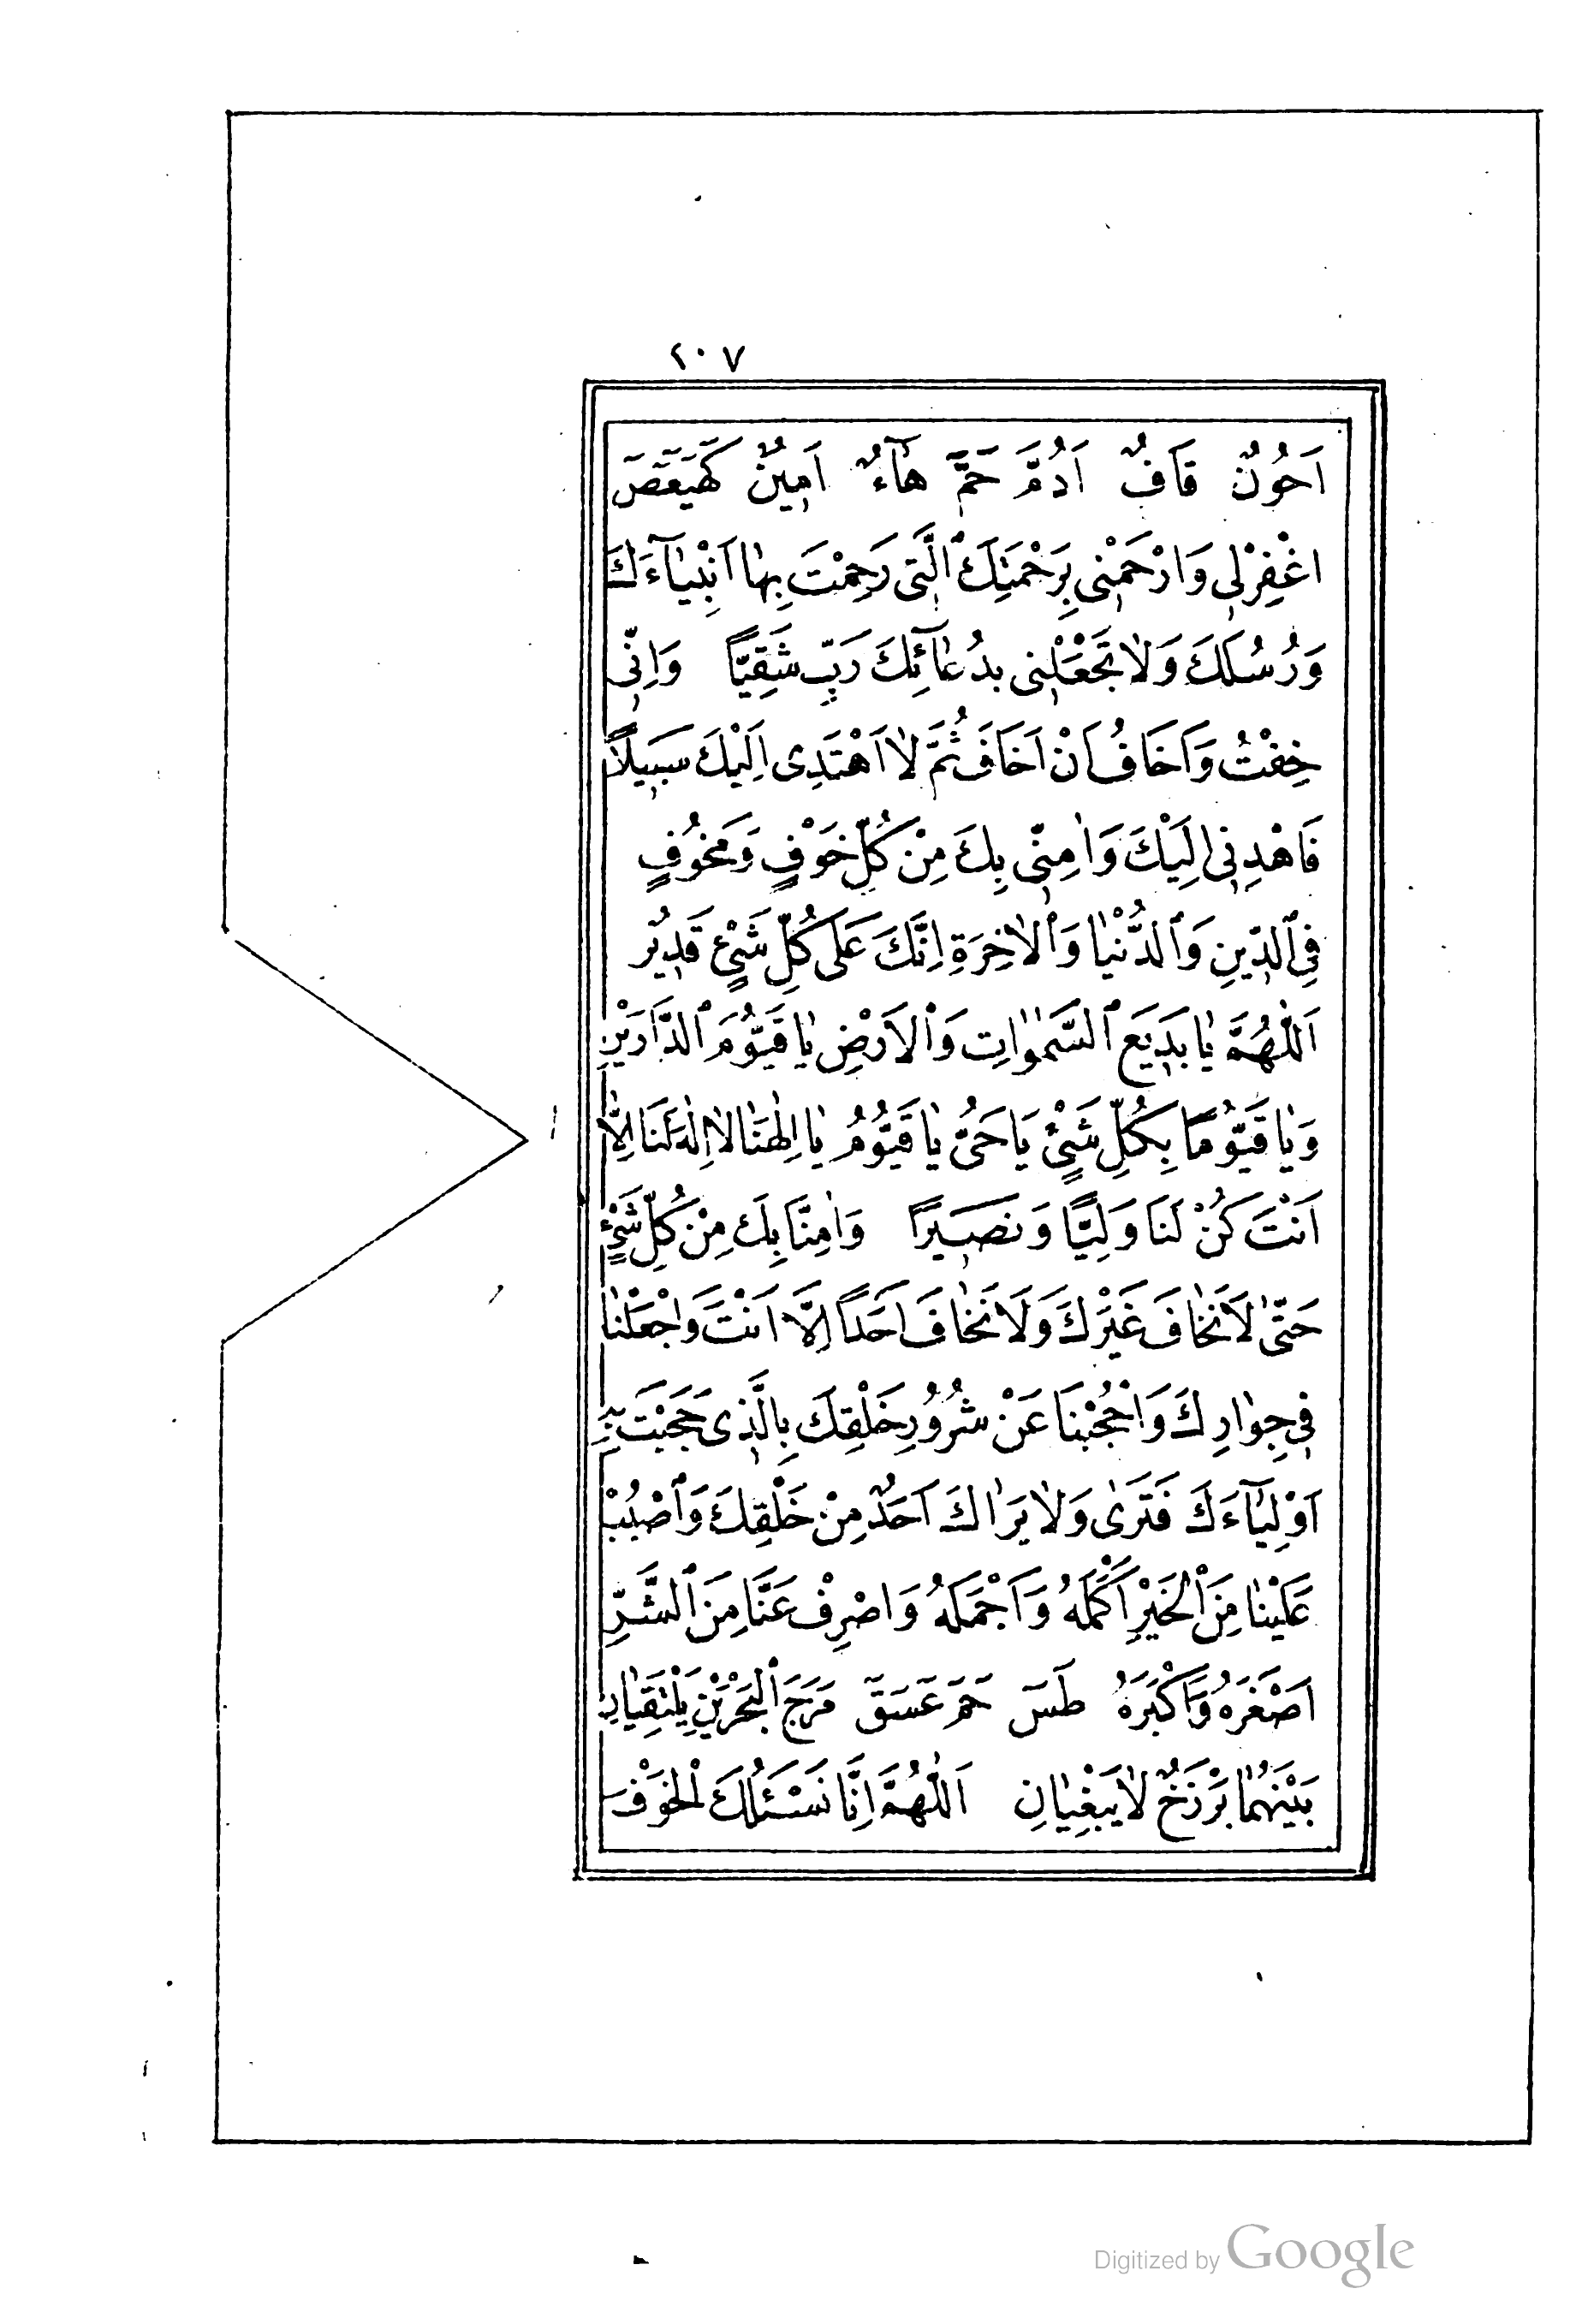 ١٠٧
اَحُونٌ قَافٌ اَدُمَّ حَمَّ هَآءٌ اٰمِينٌ كٓهٰيٰعٓصٓ
اغْفِرْلِى وَارْحَمْنِى بِرَحْمَتِكَ ٱلَّتِى رَحِمْتَ بِهٰا اَنْبِيٰآءَكَ
وَرُسُلَكَ وَلاٰ تَجْعَلْنِى بِدُعٰآئِكَ رَبِّ شَقِيًّا وَاِنِّى
خِفْتُ وَاَخَافُ اَنْ اَخَافَ ثُمَّ لاٰ اَهْتَدِى اِلَيْكَ سَبِيلاً
فَاهْدِنِى اِلَيْكَ وَاٰمِنِّى بِكَ مِنْ كُلِّ خَوْفٍ وَمَخُوفٍ
فِى ٱلدِّينِ وَٱلدُّنْيٰا وَٱلاٰخِرَةِ اِنَّكَ عَلَى كُلِّ شَىْءٍ قَدِيْر
اَللّٰهُمَّ يٰا بَدِيَع ٱلسَّمٰوٰاتِ وَٱلاَرْضِ يٰا قَيُّومَ ٱلدَّارَيْنِ
وَيٰا قَيُّومًا بِكُلِّ شَىْءٍ يَا حَىُّ يٰا قَيُّومُ يٰا اِلٰهَنَا لاٰ اِلٰهَ لَنَا اِلاَّ
اَنْتَ كُنْ لَنَا وَلِيًّا وَنَصِيرًا وَاٰمِنَّا بِكَ مِنْ كُلِّ شَىْءٍ
حَتّٰى لاَ نَخٰافَ غَيْرَكَ وَلاَ نَخٰافَ اَحَدًا اِلاَّ اَنْتَ وَاجْعَلْنٰا
فِى جِوٰارِكَ وَاحْجُبْنَا عَنْ شُرُورِ خَلْقِكَ بِالَّذِى حَجَبْتَ بِهِ
اَوْلِيٰآءَكَ فَتَرَى وَلاٰ يَرَاكَ اَحَدٌ مِنْ خَلْقِكَ وَٱصْبُبْ
عَلَيْنٰا مِنَ ٱلْخَيْرِ اَكْمَلَهُ وَاَجْمَلَهُ وَاصْرِفْ عَنَّا مِنَ ٱلشَّرِّ
اَصْغَرَهُ وَاَكْبَرَهُ طٰسٓ حٓمٓ عٓسٓقٓ مَرَجَ ٱلْبَحْرَيْنِ يَلْتَقِيٰانِ
بَيْنَهُمٰا بَرْزَخٌ لاٰ يَبْغِيٰانِ اَللّٰهُمَّ اِنَّا نَسْئَلُكَ الْخَوْفَ
Digitized by Google